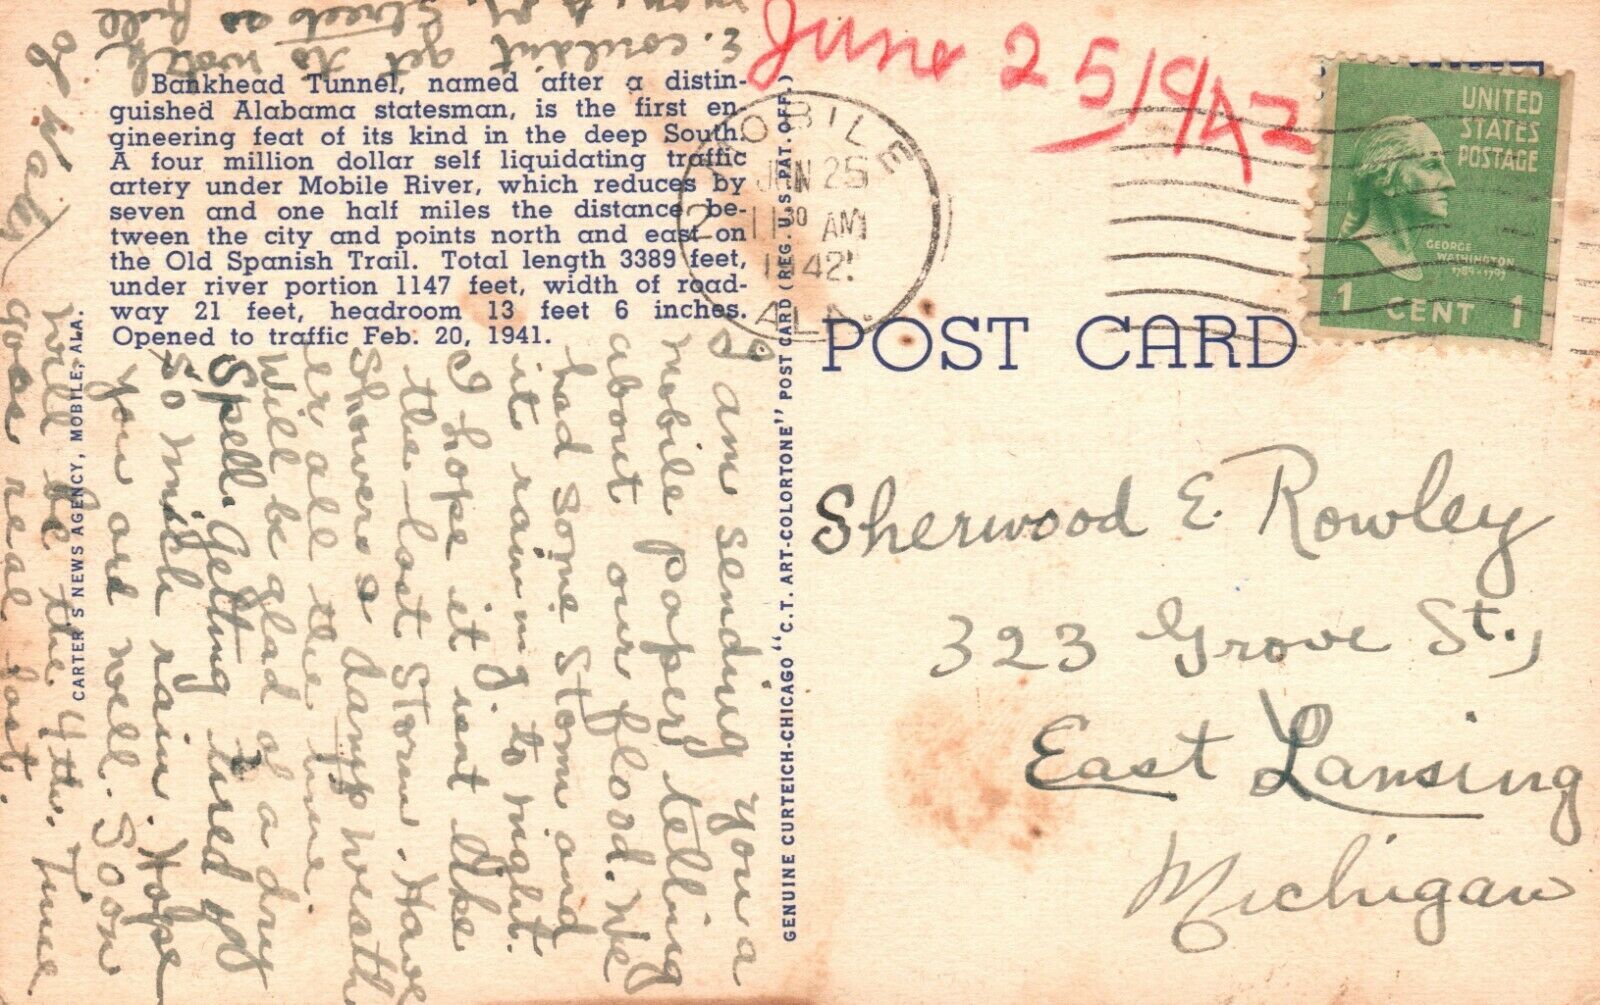 Bankhead Tunnel, named after a distin-
guished Alabama statesman, is the first en-
gineering feat of its kind in the deep South.
A four million dollar self liquidating traffic
artery under Mobile River, which reduces by
seven and one half miles the distance be-
tween the city and points north and east on
the Old Spanish Trail. Total length 3389 feet,
under river portion 1147 feet, width of road-
way 21 feet, headroom 13 feet 6 inches.
Opened to traffic Feb. 20, 1941.
CARTER'S NEWS AGENCY, MOBILE, ALA.
GENUINE CURTEICH-CHICAGO "C.T. ART-COLORTONE" POST CARD (REG. U.S. PAT. OFF.)
June 25 1942
MOBILE
2
JUN 25
11 30 AM
1942
ALA.
UNITED
STATES
POSTAGE
GEORGE
WASHINGTON
1789-1797
1 CENT 1
POST CARD
Sherwood E. Rowley
323 Grove St.,
East Lansing
Michigan
I am sending you a
Mobile paper telling
about our flood. We
had some storm and
it raining to night.
I hope it isnt like
the last storm. Have
showers & damp weath
er all the time.
Will be glad of a dry
spell. Getting tired of
so much rain. Hope
you are well. Soon
will be the 4th. Time
goes real fast.
E. couldn't get to work
Streets so full
of water